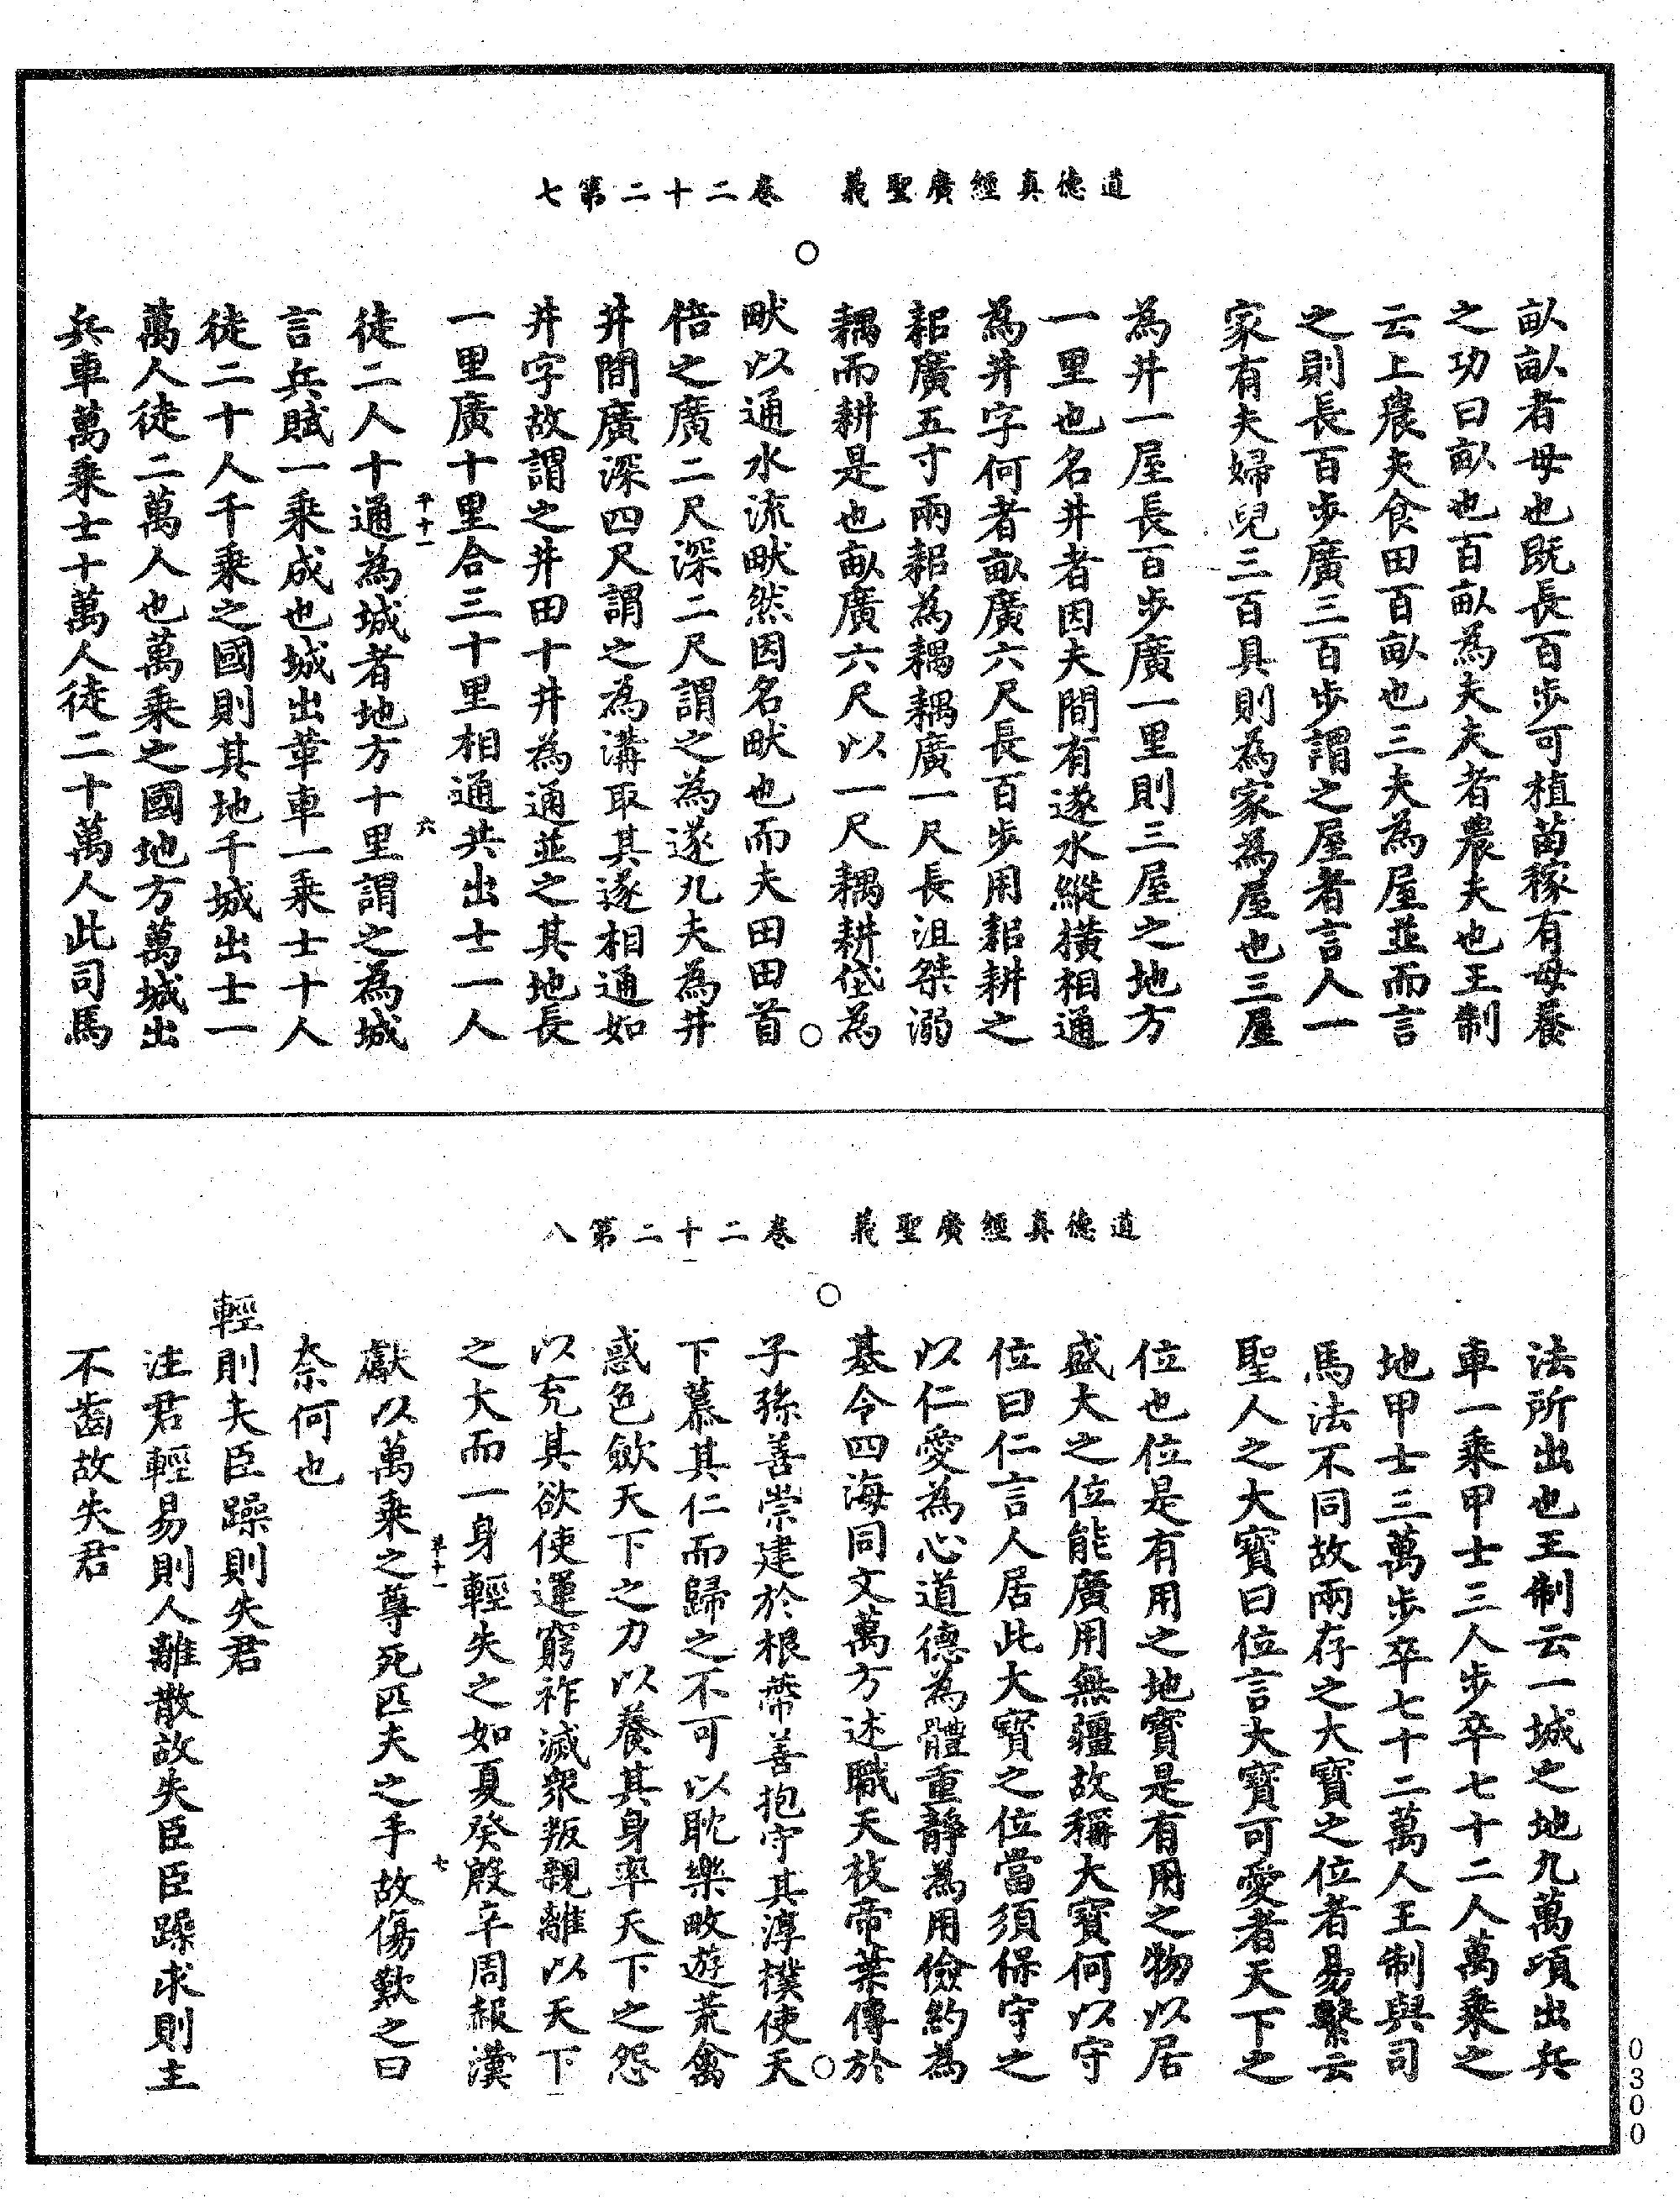 道德真經廣聖義　卷二十二第七
畝畝者母也既長百步可植苗稼有母養
之功曰畝也百畝為夫夫者農夫也王制
云上農夫食田百畝也三夫為屋並而言
之則長百步廣三百步謂之屋者言人一
家有夫婦兒三百具則為家為屋也三屋
為井一屋長百步廣一里則三屋之地方
一里也名井者因夫間有遂水縱橫相通
為井字何者畝廣六尺長百步用耜耕之
耜廣五寸兩耜為耦耦廣一尺長沮桀溺
耦而耕是也畝廣六尺以一尺耦耕伐為
畎以通水流畎然因名畎也而夫田田首
倍之廣二尺深二尺謂之為遂九夫為井
井間廣深四尺謂之為溝取其遂相通如
井字故謂之井田十井為通並之其地長
一里廣十里合三十里相通共出士一人
徒二人十通為城者地方十里謂之為城
言兵賦一乘成也城出革車一乘士十人
徒二十人千乘之國則其地千城出士一
萬人徒二萬人也萬乘之國地方萬城出
兵車萬乘士十萬人徒二十萬人此司馬
六
道德真經廣聖義　卷二十二第八
法所出也王制云一城之地九萬頃出兵
車一乘甲士三人步卒七十二人萬乘之
地甲士三萬步卒七十二萬人王制與司
馬法不同故兩存之大寶之位者易繫云
聖人之大寶曰位言大寶可愛者天下之
位也位是有用之地寶是有用之物以居
盛大之位能廣用無疆故稱大寶何以守
位曰仁言人居此大寶之位當須保守之
以仁愛為心道德為體重靜為用儉約為
基令四海同文萬方述職天枝帝葉傳於
子孫善崇建於根蔕善抱守其淳樸使天
下慕其仁而歸之不可以耽樂畋遊荒禽
惑色歛天下之力以養其身率天下之怨
以充其欲使運窮祚滅衆叛親離以天下
之大而一身輕失之如夏癸殷辛周赧漢
獻以萬乘之尊死匹夫之手故傷歎之曰
奈何也
輕則夫臣躁則失君
注君輕易則人離散故失臣臣躁求則主
不齒故失君
七
0300